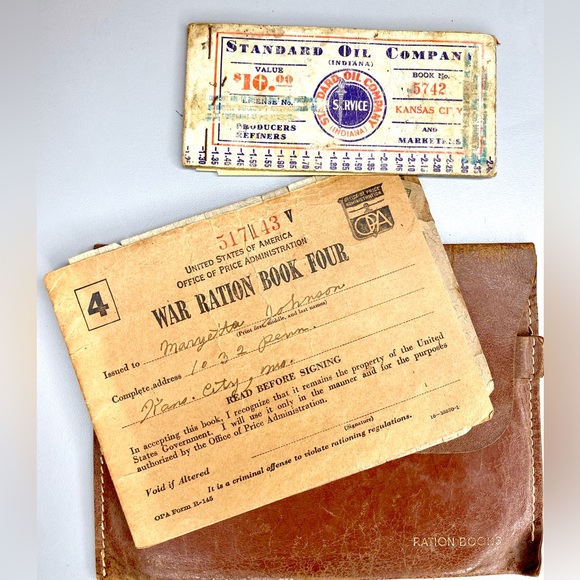 STANDARD OIL COMPANY
(INDIANA)
VALUE
$10.00
LICENSE No.
PRODUCERS
REFINERS
STANDARD OIL COMPANY
SERVICE
(INDIANA)
BOOK No.
5742
KANSAS CITY
AND
MARKETERS
1.35 1.40 1.45 1.50 1.55 1.60 1.65 1.70 1.75 1.80 1.85 1.90 1.95 2.00 2.05 2.10 2.15 2.20
517143 V
OFFICE OF PRICE
ADMINISTRATION
OPA
UNITED STATES OF AMERICA
OFFICE OF PRICE ADMINISTRATION
4
WAR RATION BOOK FOUR
Issued to Maryetta Johnson
(Print first, middle, and last names)
Complete address 1032 Penn.
Kans. City, Mo.
READ BEFORE SIGNING
In accepting this book, I recognize that it remains the property of the United
States Government. I will use it only in the manner and for the purposes
authorized by the Office of Price Administration.
Void if Altered
(Signature)
It is a criminal offense to violate rationing regulations.
OPA Form R-145
16-35570-1
RATION BOOKS